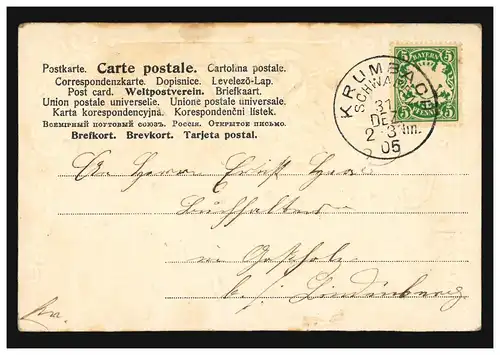 Postkarte. Carte postale. Cartolina postale.
Correspondenzkarte. Dopisnice. Levelező-Lap.
Post card. Weltpostverein. Briefkaart.
Union postale universelle. Unione postale universale.
Karta korespondencyjna. Korespondenční lístek.
Всемірный почтовый союзъ. Россія. Открытое письмо.
Brefkort. Brevkort. Tarjeta postal.
BAYERN
5 5
5 PFENNIG 5
KRUMBACH
SCHWA
31
DEZ
2-3 Nm.
05
An Herrn Ernst
Buchhalter
in
b./. Lindenberg